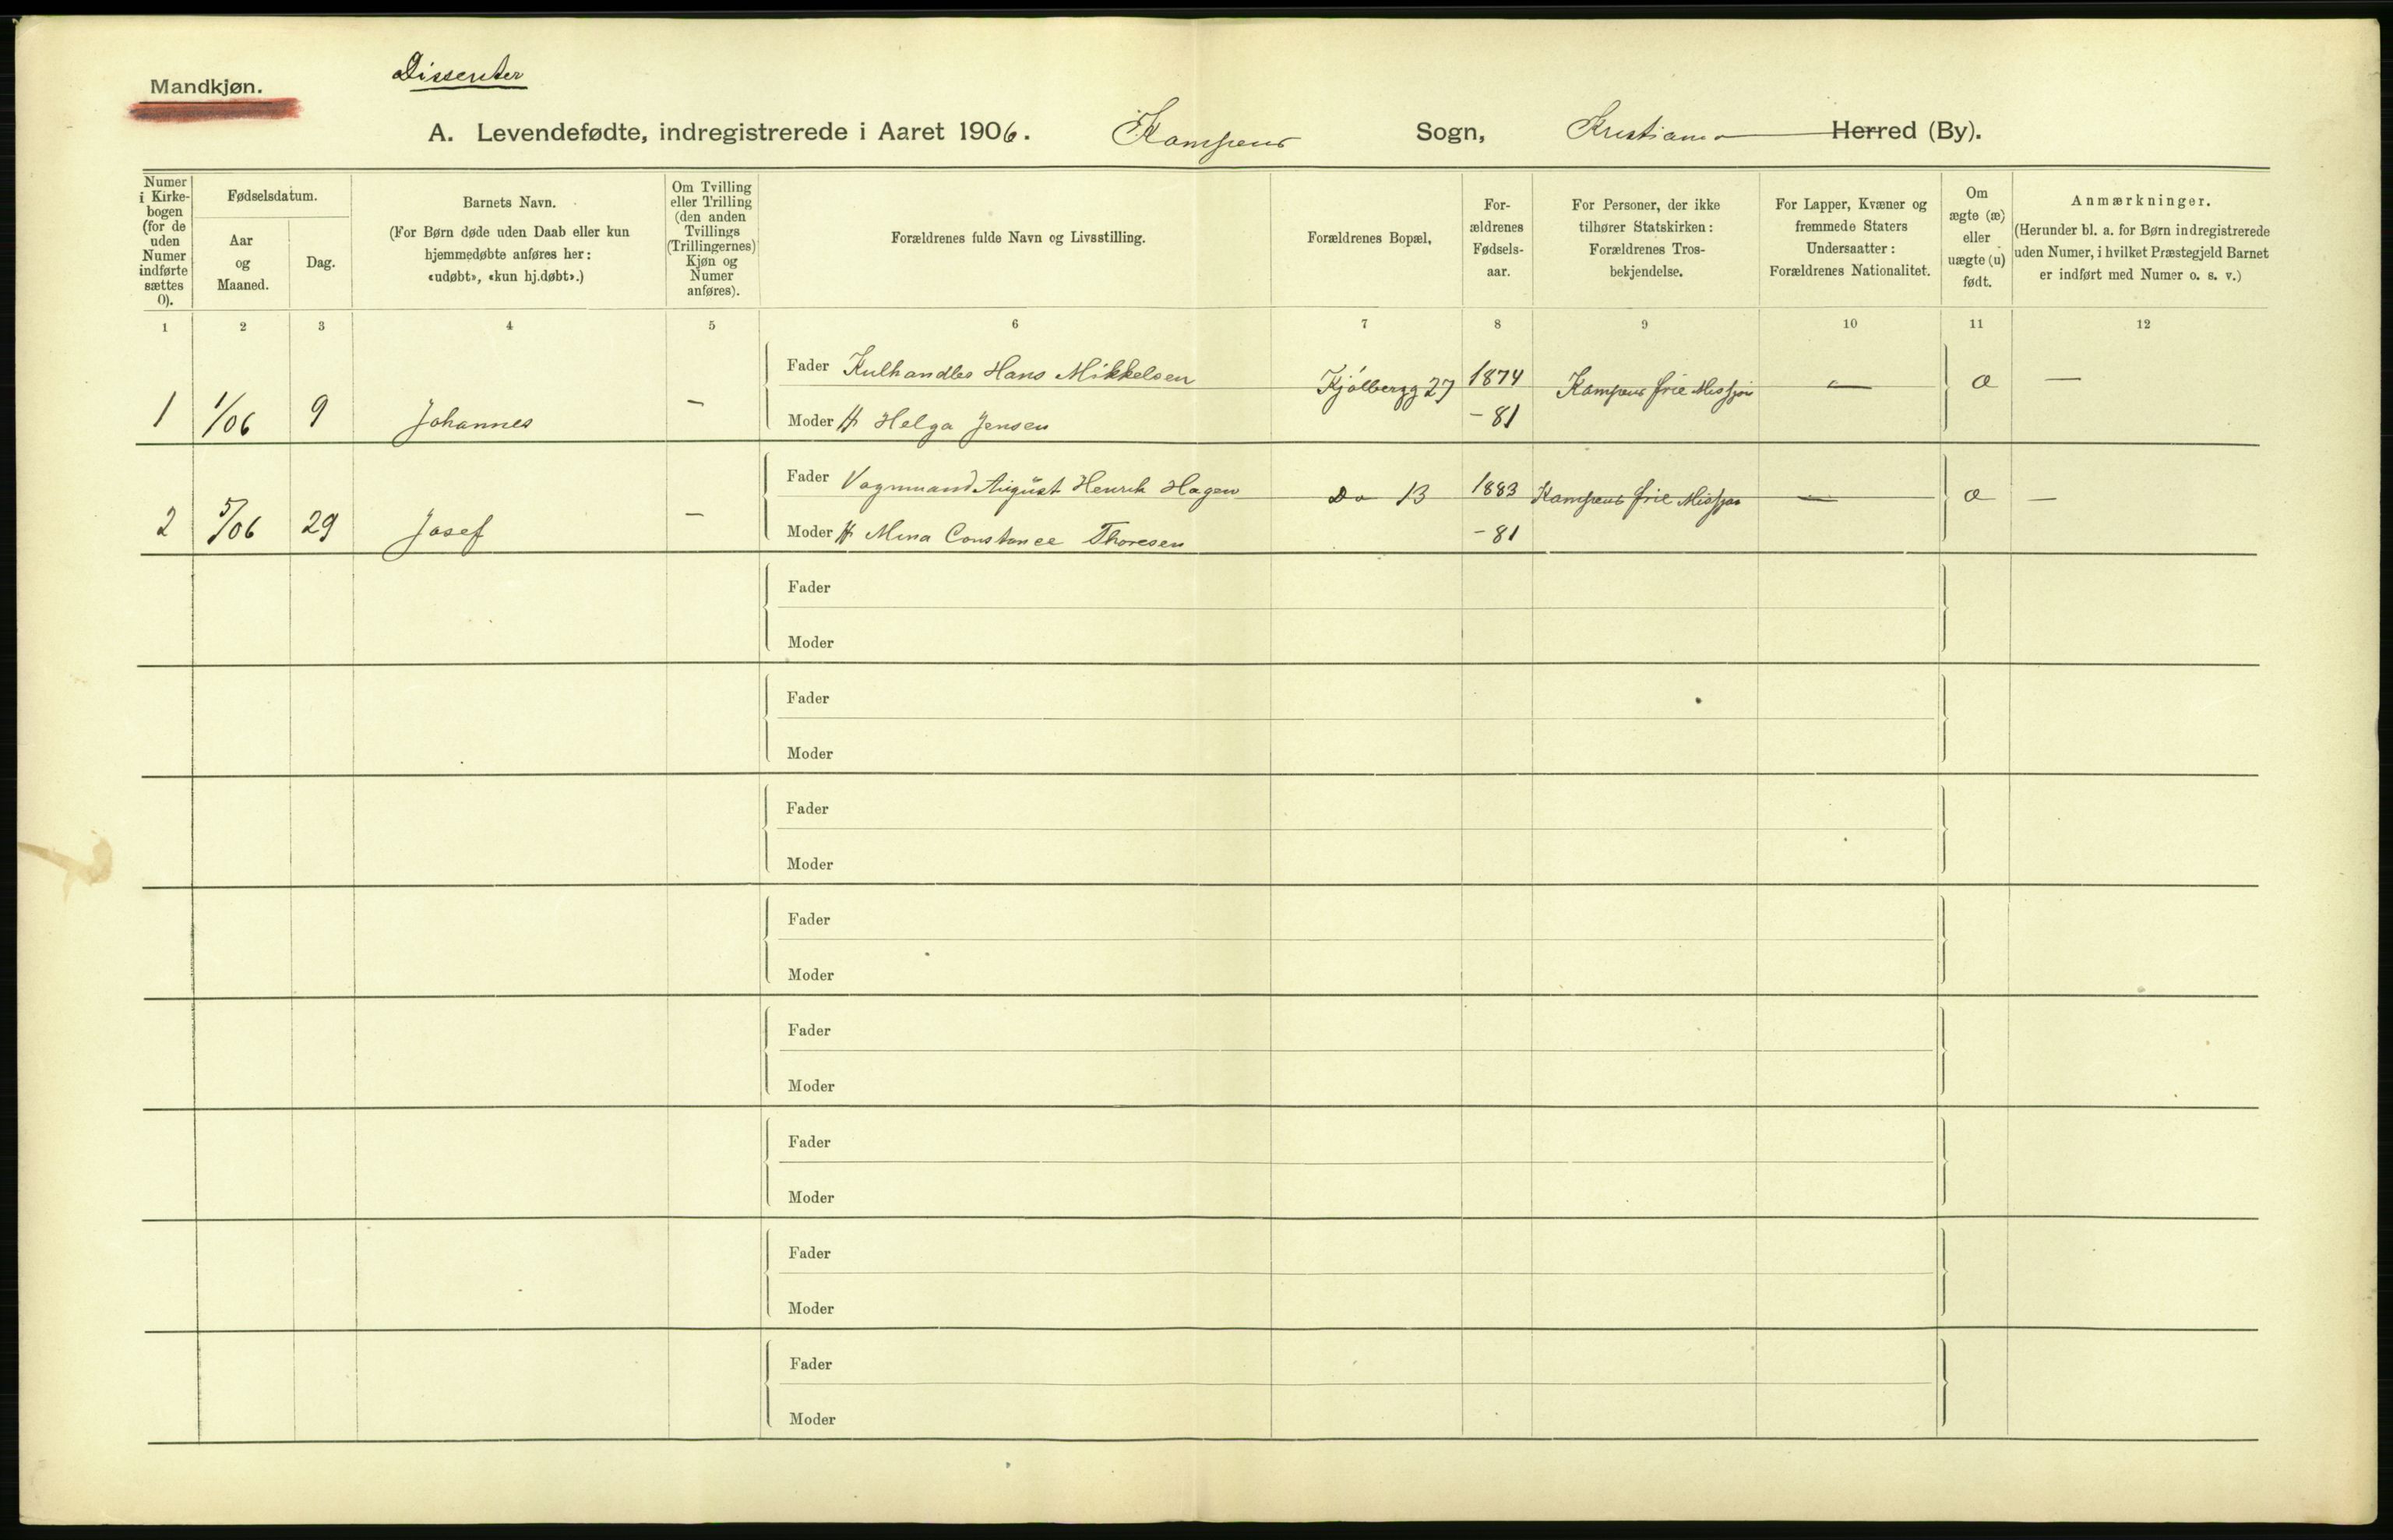 Mandkjøn.
Dissenter
A. Levendefødte, indregistrerede i Aaret 1906. Kampens Sogn, Kristiania Herred (By).
Numer
i Kirke-
bogen
(for de
uden
Numer
indførte
sættes
0).
Fødselsdatum.
Aar
og
Maaned.
Dag.
Barnets Navn.
(For Børn døde uden Daab eller kun
hjemmedøbte anføres her:
«udøbt», «kun hj.døbt».)
Om Tvilling
eller Trilling
(den anden
Tvillings
(Trillingernes)
Kjøn og
Numer
anføres).
Forældrenes fulde Navn og Livsstilling.
Forældrenes Bopæl,
For-
ældrenes
Fødsels-
aar.
For Personer, der ikke
tilhører Statskirken:
Forældrenes Tros-
bekjendelse.
For Lapper, Kvæner og
fremmede Staters
Undersaatter:
Forældrenes Nationalitet.
Om
ægte (æ)
eller
uægte (u)
født.
Anmærkninger.
(Herunder bl. a. for Børn indregistrerede
uden Numer, i hvilket Præstegjeld Barnet
er indført med Numer o. s. v.)
1 2 3 4 5 6 7 8 9 10 11 12
Fader Kulhandler Hans Mikkelsen Kjølbergg 27 1874 Kampens frie Missjon - æ —
1 1/06 9 Johannes - Moder H Helga Jensen - 81
Fader Vognmand August Henrik Hagen Do 13 1883 Kampens frie Missjon — æ —
2 5/06 29 Josef - Moder H Mina Constance Thoresen - 81
Fader
Moder
Fader
Moder
Fader
Moder
Fader
Moder
Fader
Moder
Fader
Moder
Fader
Moder
Fader
Moder